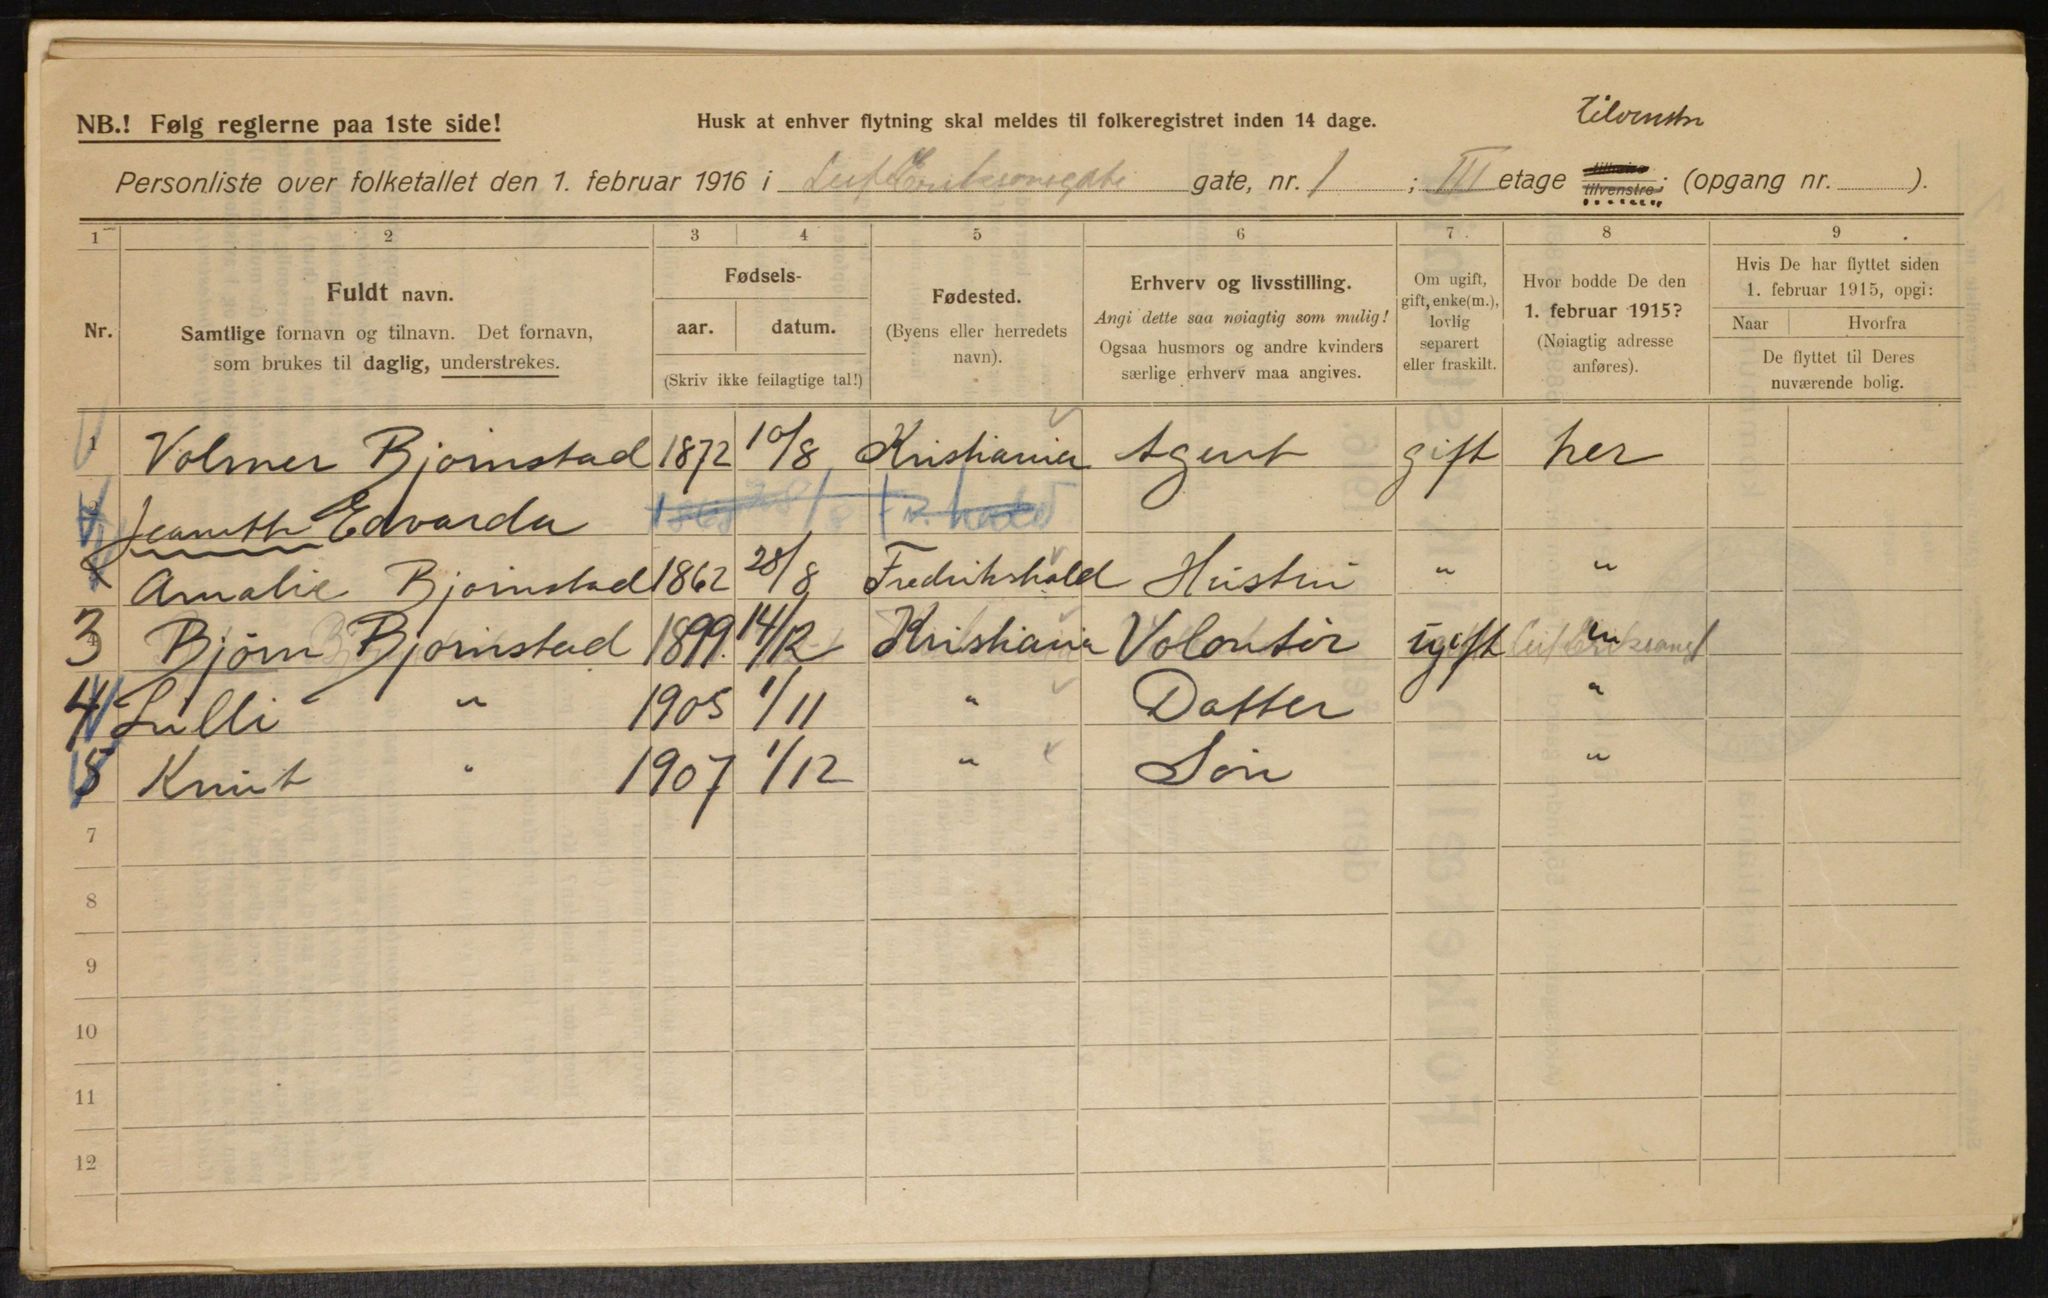 tilvenstre
NB.! Følg reglerne paa 1ste side! Husk at enhver flytning skal meldes til folkeregistret inden 14 dage.
Personliste over folketallet den 1. februar 1916 i Leif Eriksonsgate gate, nr. 1 ; III etage tilhøire tilvenstre; (opgang nr. ).
1 2 3 4 5 6 7 8 9
Nr.
Fuldt navn.
Samtlige fornavn og tilnavn. Det fornavn,
som brukes til daglig, understrekes.
Fødsels-
aar. datum.
(Skriv ikke feilagtige tal!)
Fødested.
(Byens eller herredets
navn).
Erhverv og livsstilling.
Angi dette saa nøiagtig som mulig!
Ogsaa husmors og andre kvinders
særlige erhverv maa angives.
Om ugift,
gift, enke(m.),
lovlig
separert
eller fraskilt.
Hvor bodde De den
1. februar 1915?
(Nøiagtig adresse
anføres).
Hvis De har flyttet siden
1. februar 1915, opgi:
Naar Hvorfra
De flyttet til Deres
nuværende bolig.
1 Volmer Bjørnstad 1872 10/8 Kristiania Agent gift her
2 Jeaneth Edvarda
Amalie Bjørnstad 1862 28/8 Fredrikshald Hustru " "
3 Bjørn Bjørnstad 1899 14/12 Kristiania Volontør ugift "
4 Lilli " 1905 1/11 " Datter "
5 Knut " 1907 1/12 " Søn "
7
8
9
10
11
12